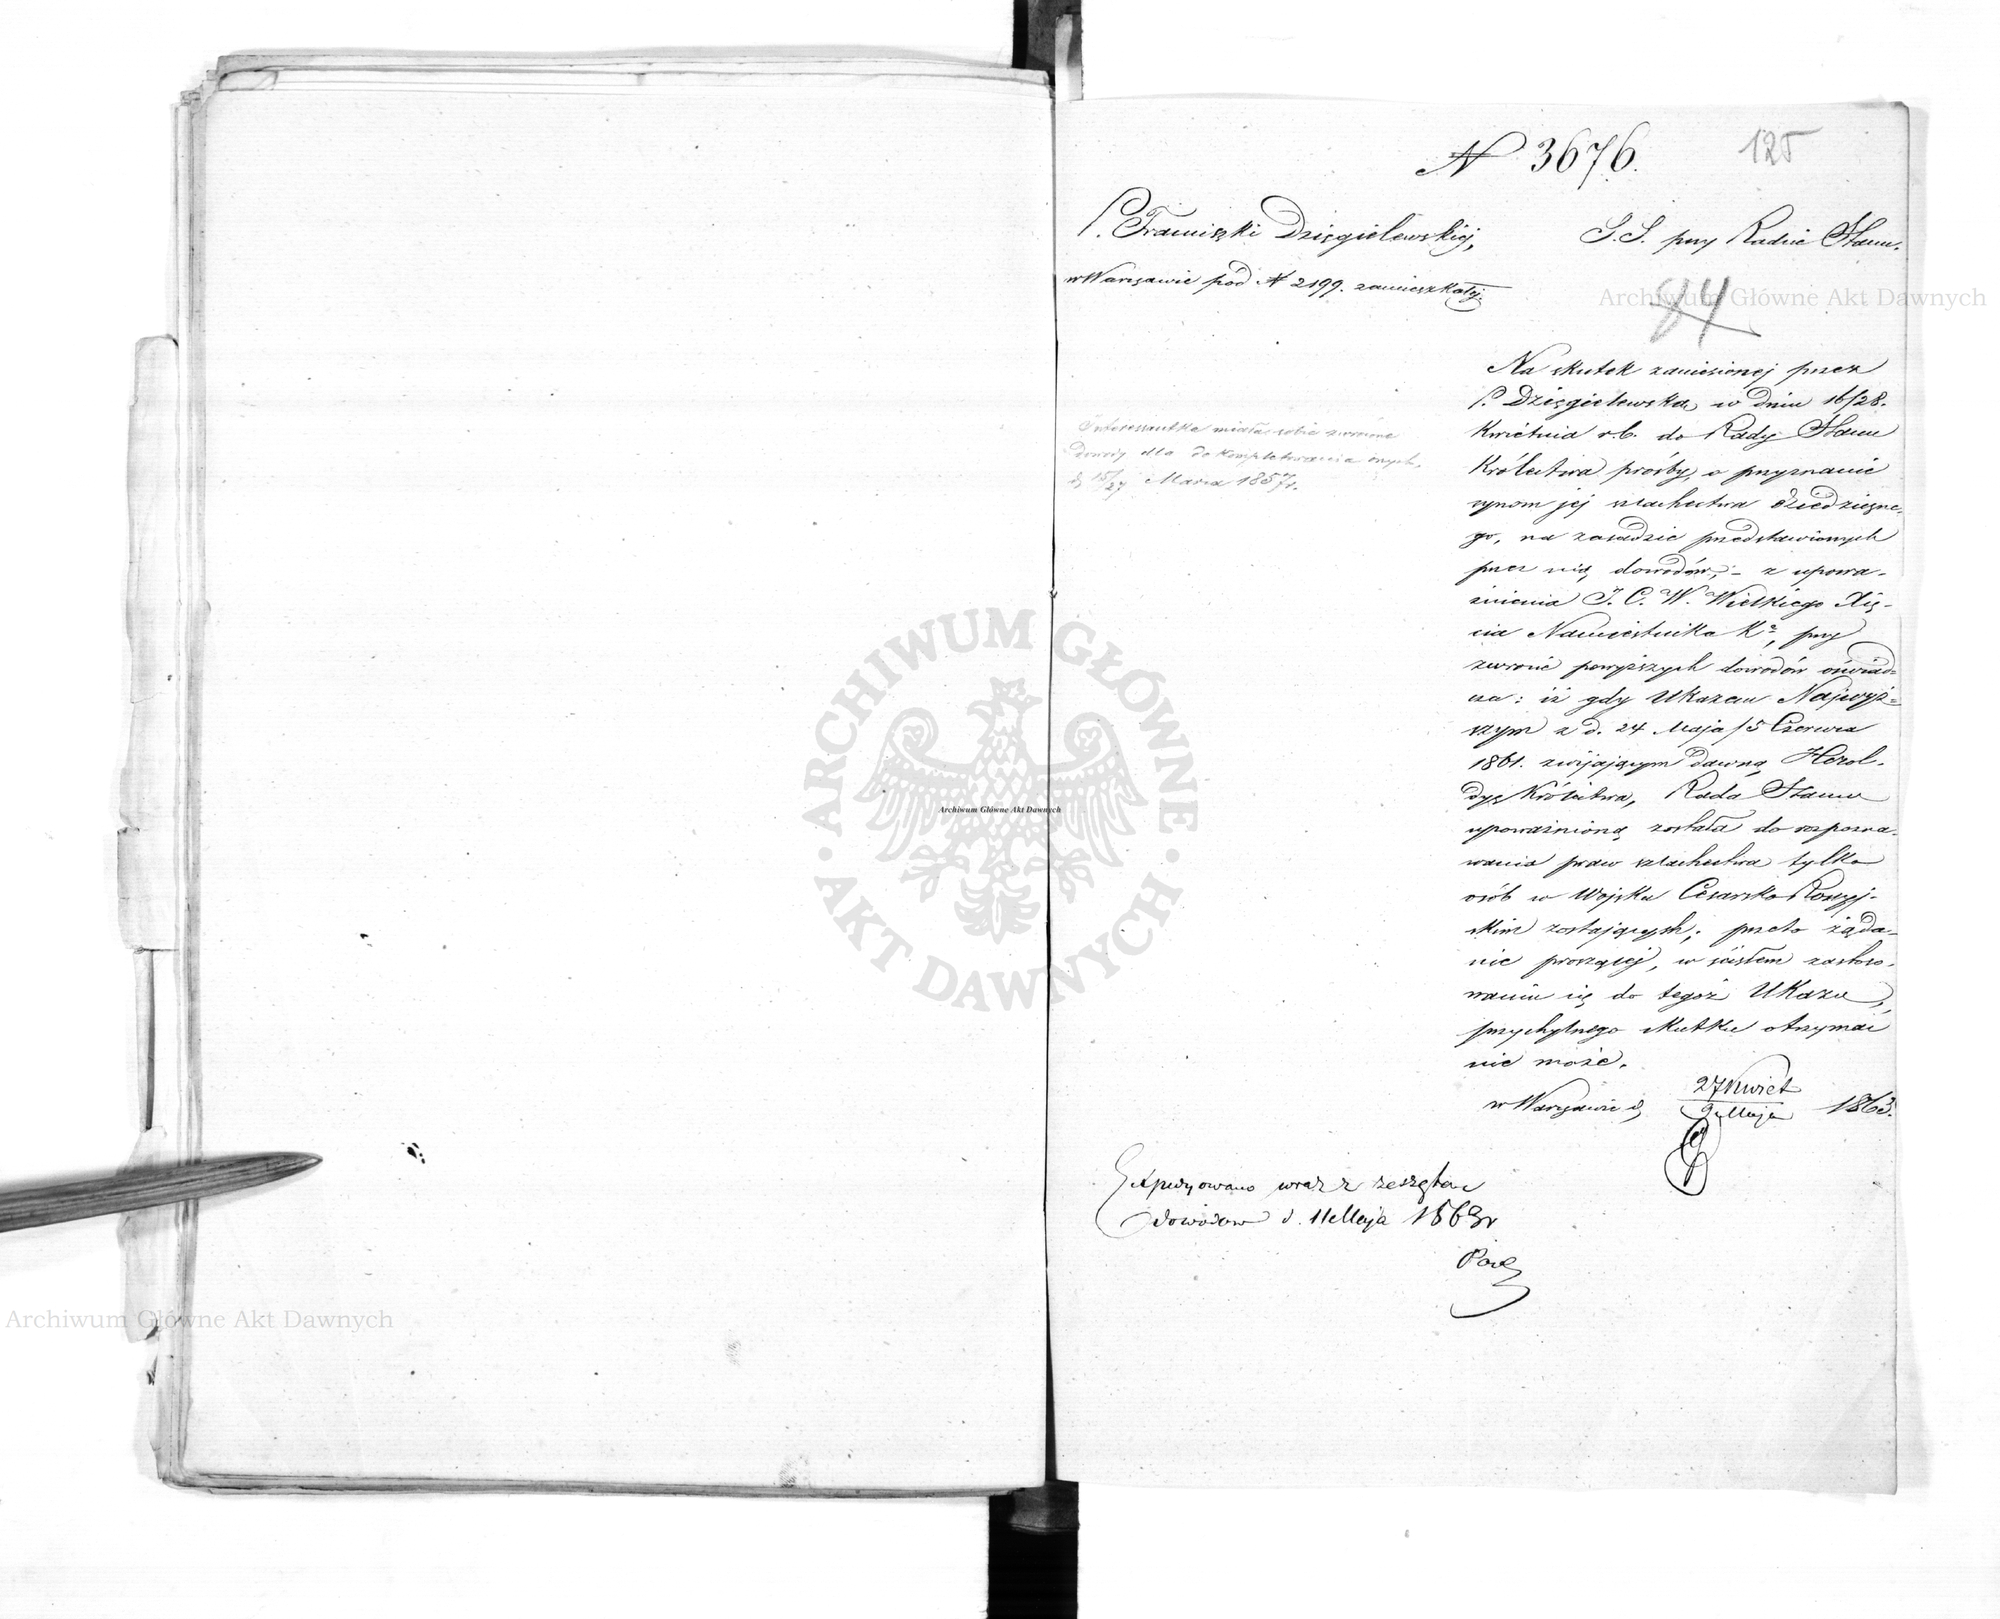 N 3676.
125
P. Franciszki Dzięgielewskiej,
w Warszawie pod N 2199. zamieszkałej.
S.S. przy Radzie Stanu.
84
Interessantka miała sobie zwrócone
dowody dla dokompletowania onych,
d. 15/27 Marca 1857 r.
Na skutek zaniesionej przez
P. Dzięgielewską w dniu 16/28.
Kwietnia r.b. do Rady Stanu
Królestwa prośby, o przyznanie
synom jej szlachectwa dziedziczne-
go, na zasadzie przedstawionych
przez nią dowodów, - z upowa-
żnienia J. C. W. Wielkiego Xię-
cia Namiestnika K°, przy
zwrocie powyższych dowodów oświad-
cza: iż gdy Ukazem Najwyż-
szym z d. 24 Maja/5 Czerwca
1861. zwijającym dawną Herol-
dyę Królestwa, Rada Stanu
upoważnioną została do rozpozna-
wania praw szlachectwa tylko
osób w Wojsku Cesarsko Rossyj-
skim zostających; przeto żąda-
nie proszącej, w ścisłem zastoso-
waniu się do tegoż Ukazu,
przychylnego skutku otrzymać
nie może.
w Warszawie d. 27 Kwiet/9 Maja 1863.
Expedyowano wraz z zeszytem
dowodów d. 11 Maja 1863 r
Archiwum Główne Akt Dawnych
Archiwum Główne Akt Dawnych
Archiwum Główne Akt Dawnych
ARCHIWUM GŁÓWNE
AKT DAWNYCH